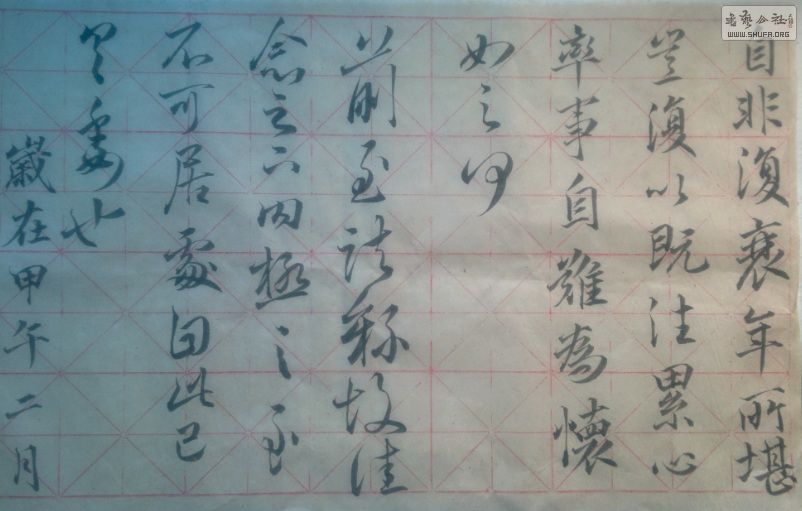 自非復衰年所堪
豈復以既往累心
率事自難為懷
如之何
前至諸種故佳
念之不內極之至
不可居處因此已
具委也
歲在甲午二月
書藝公社
WWW.SHUFA.ORG